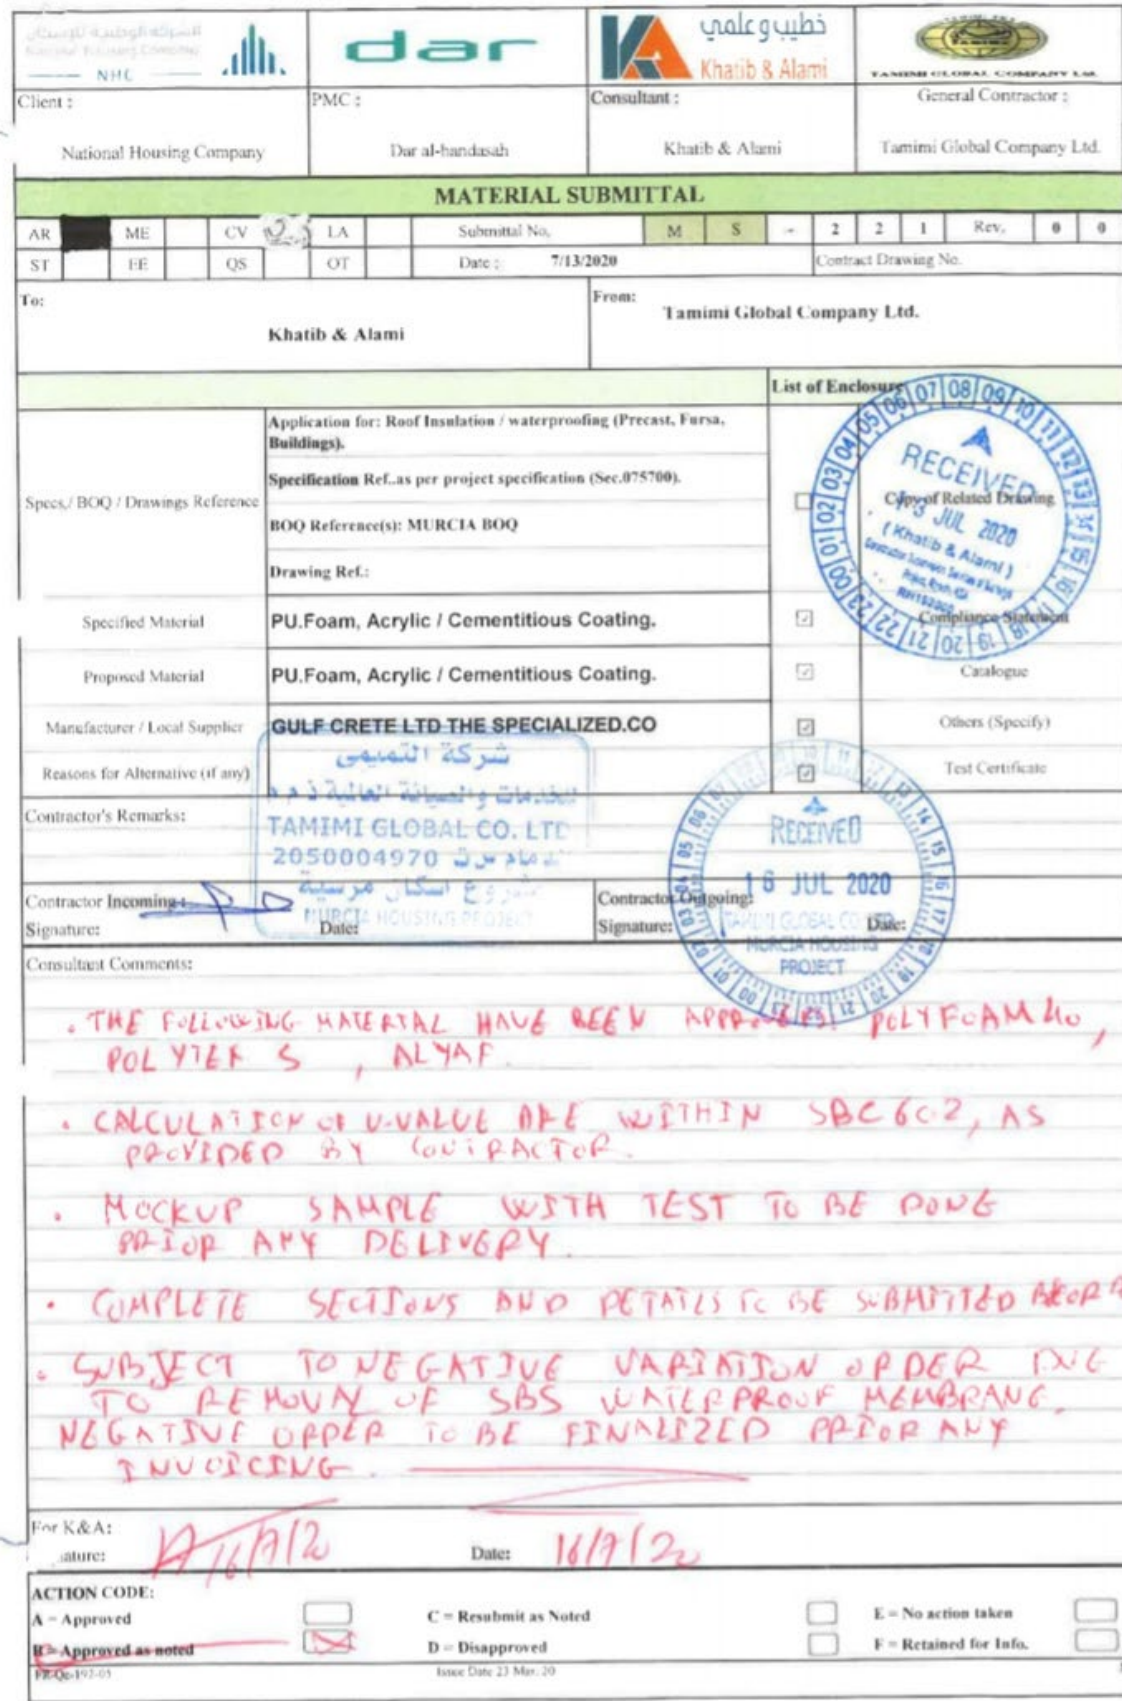 NHC
dar
خطيب وعلمي
Khatib & Alami
TAMIMI
TAMIMI GLOBAL COMPANY Ltd.
Client :
PMC :
Consultant :
General Contractor :
National Housing Company
Dar al-handasah
Khatib & Alami
Tamimi Global Company Ltd.
MATERIAL SUBMITTAL
AR ME CV LA Submittal No, M S - 2 2 1 Rev. 0 0
ST EE QS OT Date : 7/13/2020 Contract Drawing No.
To:
Khatib & Alami
From:
Tamimi Global Company Ltd.
List of Enclosure
Specs./ BOQ / Drawings Reference
Application for: Roof Insulation / waterproofing (Precast, Fursa,
Buildings).
Specification Ref..as per project specification (Sec.075700).
BOQ Reference(s): MURCIA BOQ
Drawing Ref.:
Copy of Related Drawing
RECEIVED
JUL 2020
( Khatib & Alami )
Specified Material PU.Foam, Acrylic / Cementitious Coating. Compliance Statement
Proposed Material PU.Foam, Acrylic / Cementitious Coating. Catalogue
Manufacturer / Local Supplier GULF CRETE LTD THE SPECIALIZED.CO Others (Specify)
Reasons for Alternative (if any) Test Certificate
شركة التميمي
للخدمات والصيانة العالمية ذ م م
TAMIMI GLOBAL CO. LTD
2050004970
مشروع اسكان مرسية
MURCIA HOUSING PROJECT
Contractor's Remarks:
RECEIVED
16 JUL 2020
TAMIMI GLOBAL CO. LTD
MURCIA HOUSING
PROJECT
Contractor Incoming:
Signature: Date:
Contractor Outgoing:
Signature: Date:
Consultant Comments:
. THE FOLLOWING MATERIAL HAVE BEEN APPROVED: POLYFOAM 40,
POLYTEK S , ALYAF.
. CALCULATION OF U-VALUE ARE WITHIN SBC 602, AS
PROVIDED BY CONTRACTOR.
. MOCKUP SAMPLE WITH TEST TO BE DONE
PRIOR ANY DELIVERY.
. COMPLETE SECTIONS AND DETAILS TO BE SUBMITTED
. SUBJECT TO NEGATIVE VARIATION ORDER DUE
TO REMOVAL OF SBS WATERPROOF MEMBRANE.
NEGATIVE ORDER TO BE FINALIZED PRIOR ANY
INVOICING.
For K&A:
ature: 16/7/20 Date: 16/7/20
ACTION CODE:
A = Approved C = Resubmit as Noted E = No action taken
B = Approved as noted D = Disapproved F = Retained for Info.
FR-Qc-192-05 Issue Date 23 Mar. 20